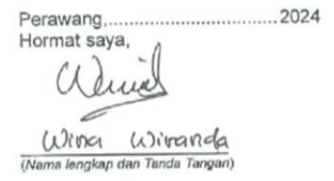 Perawang,................................2024
Hormat saya,
Wina Wiranda
(Nama lengkap dan Tanda Tangan)